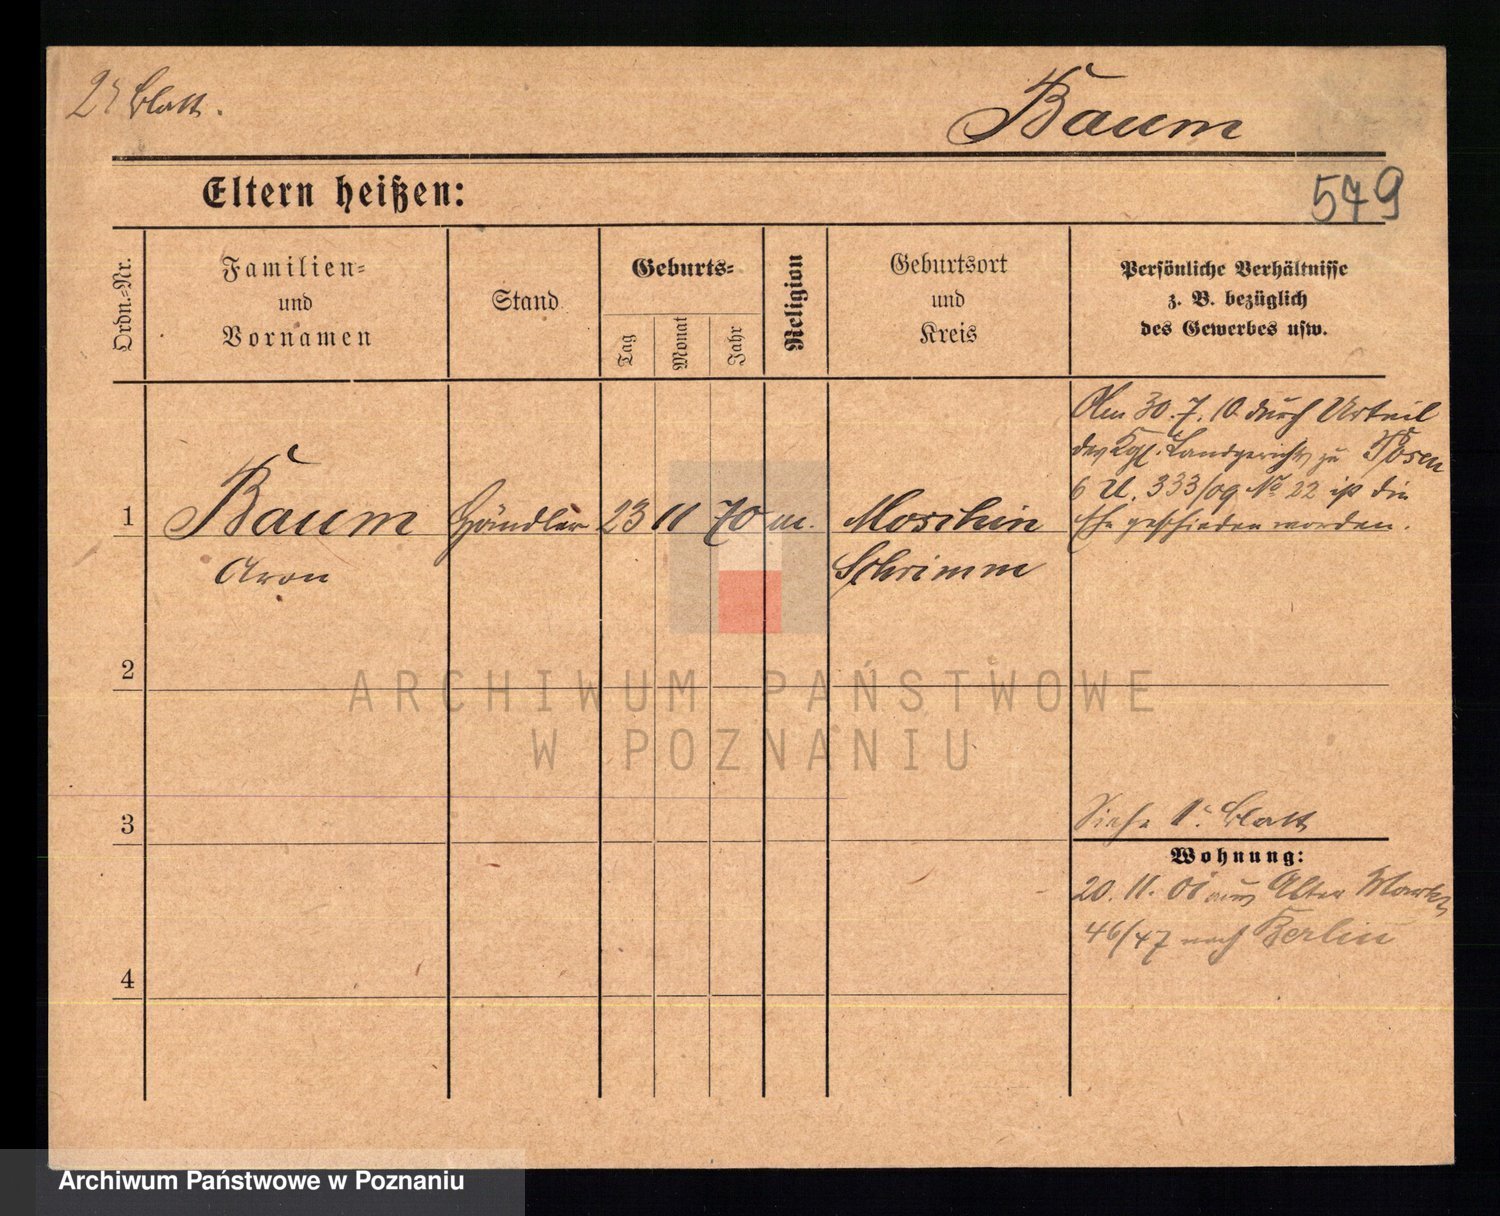 2t Blatt.
Baum
Eltern heißen:
579
Ordn.=Nr.
Familien=
und
Vornamen
Stand
Geburts=
Tag
Monat
Jahr
Religion
Geburtsort
und
Kreis
Persönliche Verhältnisse
z. B. bezüglich
des Gewerbes usw.
Am 30. 7. 10. durch Urteil
des Kgl. Landgerichts zu Posen
6 U. 333/09 No 22 ist die
Ehe geschieden worden.
1 Baum Händler 23 11 70 m. Moschin
Aron Schrimm
2
ARCHIWUM PAŃSTWOWE
W POZNANIU
3
Siehe 1. Blatt
Wohnung:
20. 11. 01 aus Alter Markt
46/47 nach Berlin
4
Archiwum Państwowe w Poznaniu